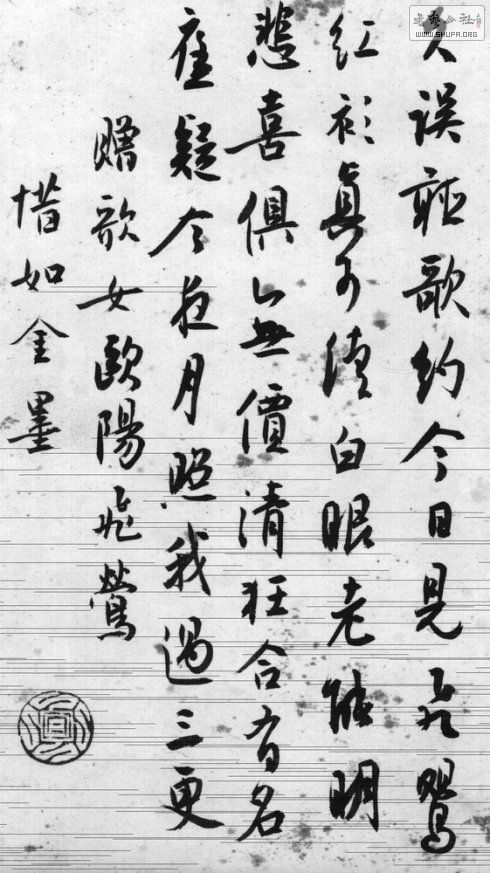 久誤聽歌約今日見飛鶯
紅衫真可白眼老能明
悲喜俱無價清狂合有名
應疑今夜月照我過三更
贈歌女歐陽飛鶯
惜如金墨
書藝公社
WWW.SHUFA.ORG